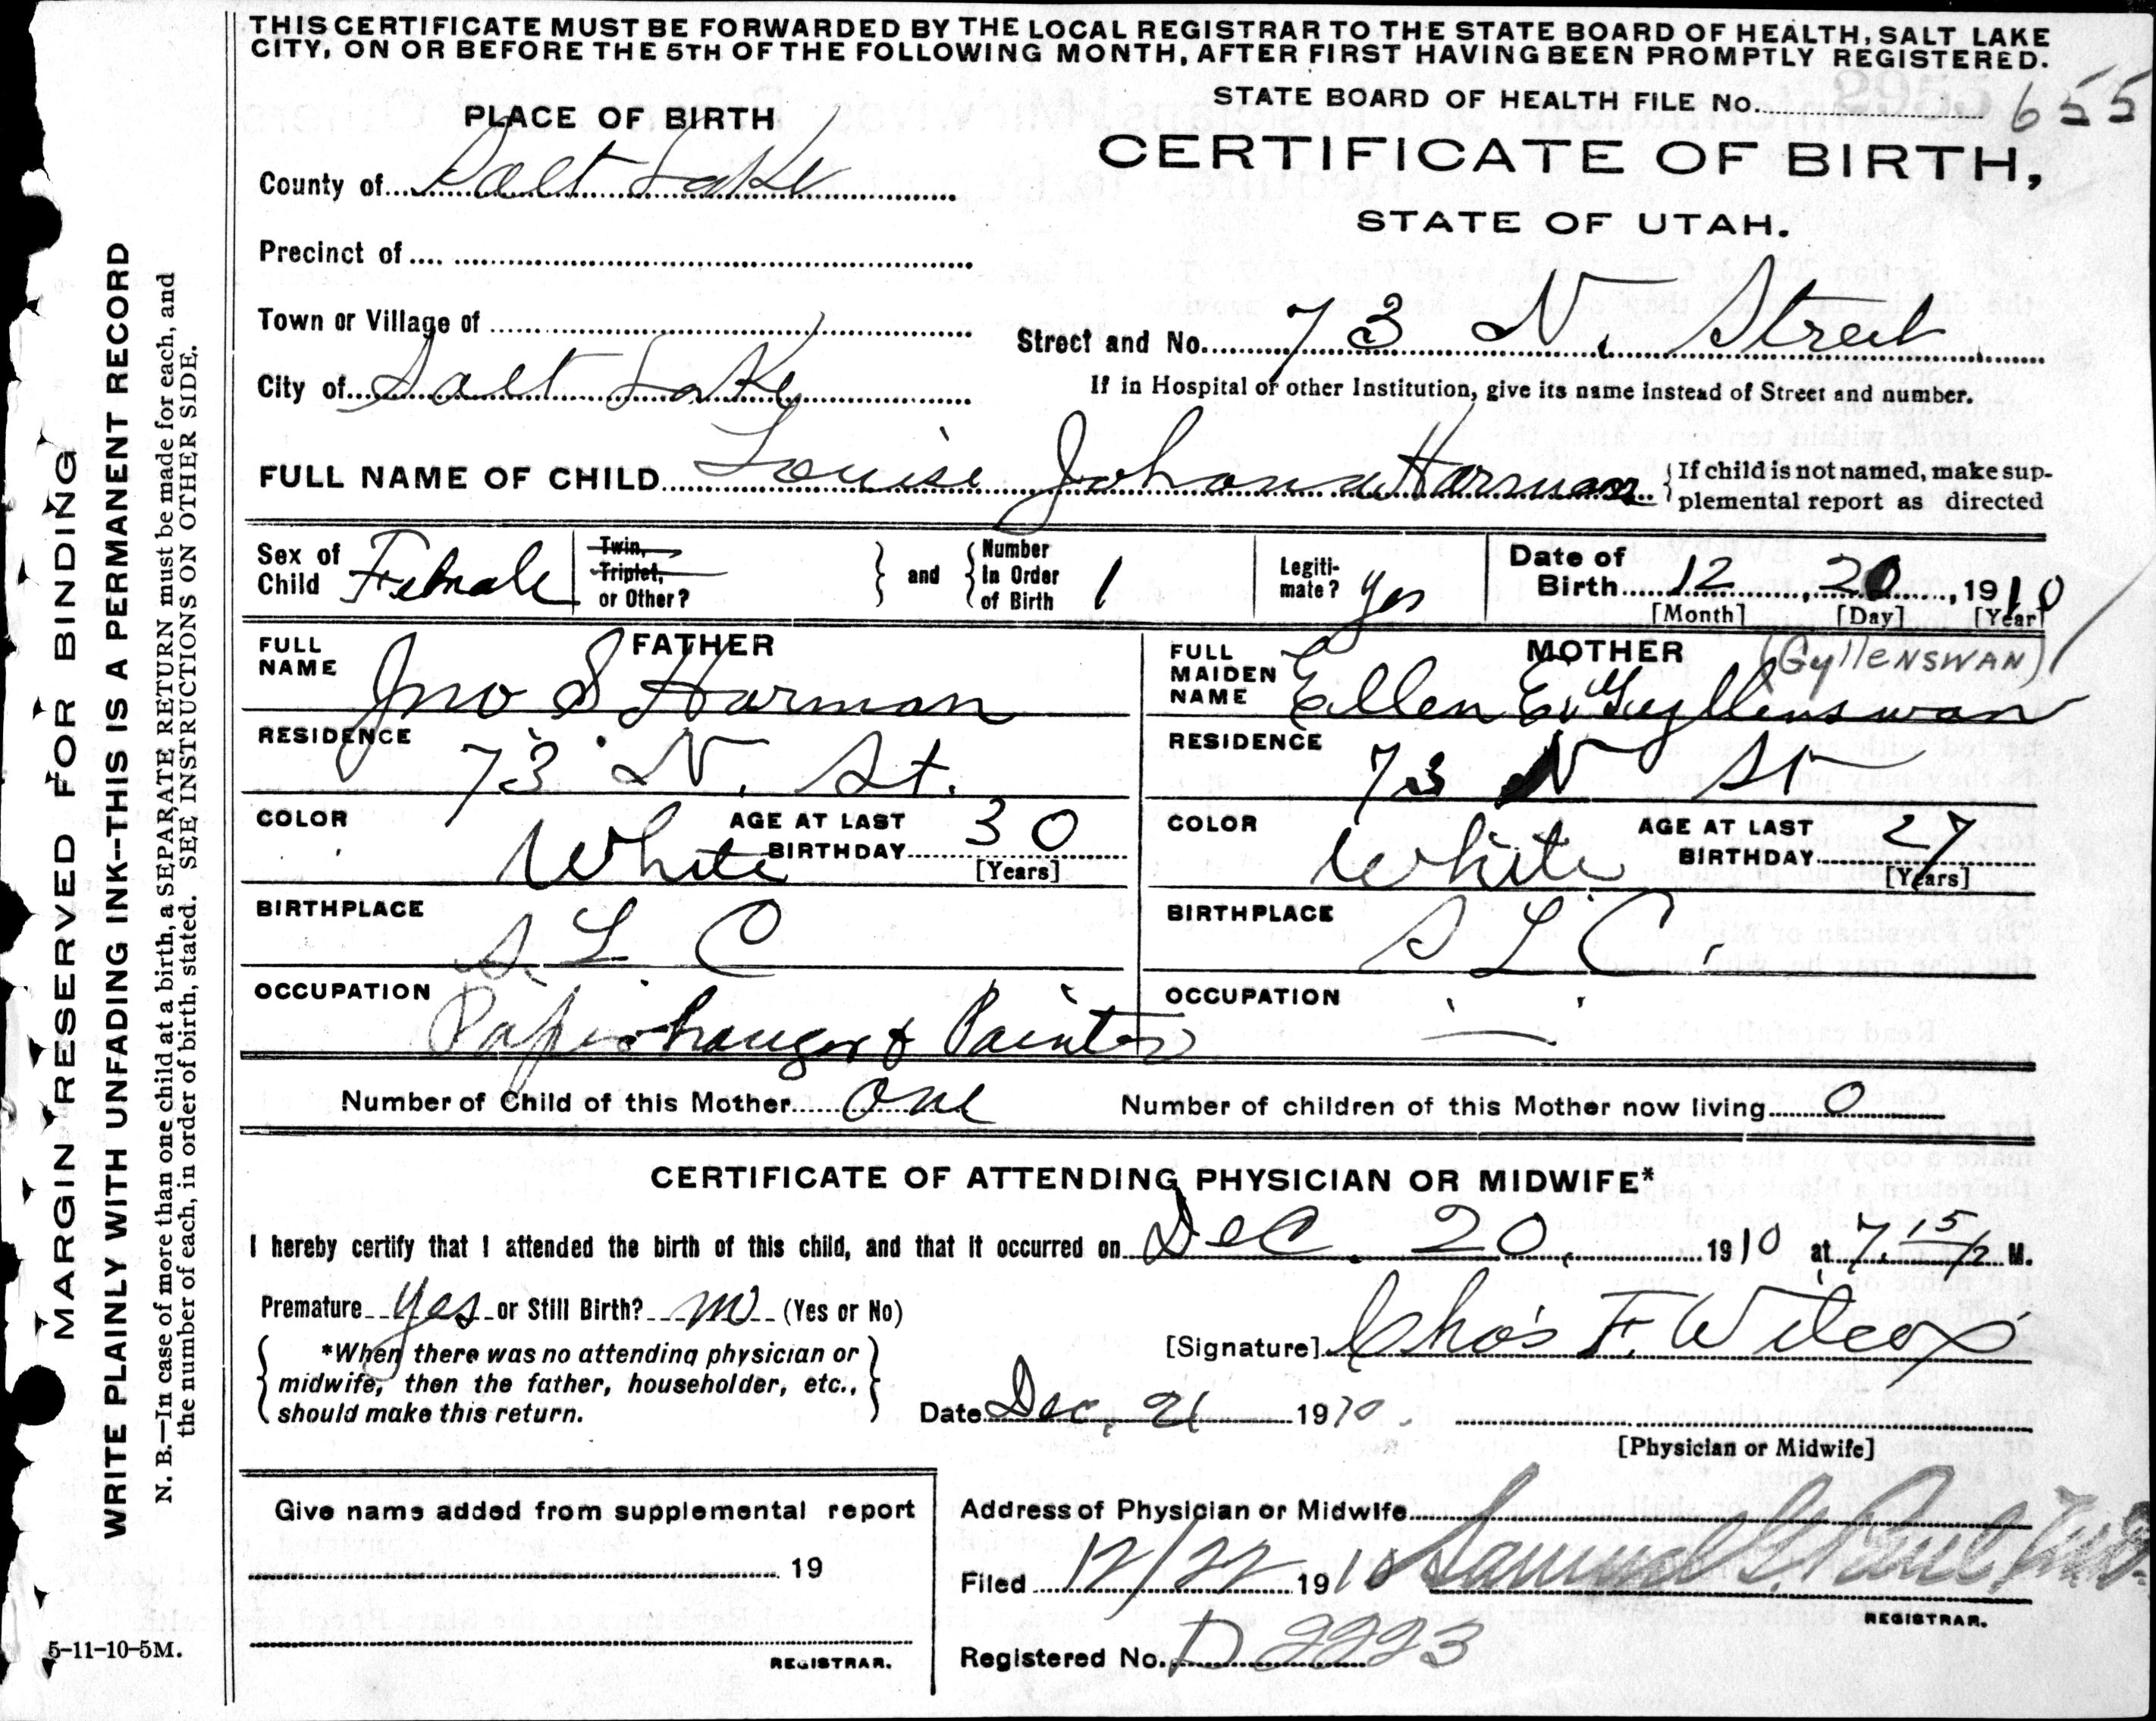 THIS CERTIFICATE MUST BE FORWARDED BY THE LOCAL REGISTRAR TO THE STATE BOARD OF HEALTH, SALT LAKE
CITY, ON OR BEFORE THE 5TH OF THE FOLLOWING MONTH, AFTER FIRST HAVING BEEN PROMPTLY REGISTERED.
STATE BOARD OF HEALTH FILE No. 655
PLACE OF BIRTH
CERTIFICATE OF BIRTH,
STATE OF UTAH.
County of Salt Lake
Precinct of
Town or Village of
Street and No. 73 N. Street
City of Salt Lake
If in Hospital or other Institution, give its name instead of Street and number.
FULL NAME OF CHILD Louise Johanna Harman
If child is not named, make sup-
plemental report as directed
Sex of Child Female
Twin, Triplet, or Other?
and
Number In Order of Birth 1
Legiti-mate? yes
Date of Birth 12, 20, 1910
[Month] [Day] [Year]
FATHER
FULL NAME Jno S Harman
RESIDENCE 73 N. St.
COLOR White
AGE AT LAST BIRTHDAY 30
[Years]
BIRTHPLACE S. L. C
OCCUPATION Paperhanger & Painter
MOTHER (GyllENSWAN)
FULL MAIDEN NAME Ellen E. Gyllenswan
RESIDENCE 73 N St
COLOR White
AGE AT LAST BIRTHDAY 27
[Years]
BIRTHPLACE S L C.
OCCUPATION —
Number of Child of this Mother one
Number of children of this Mother now living 0
CERTIFICATE OF ATTENDING PHYSICIAN OR MIDWIFE*
I hereby certify that I attended the birth of this child, and that it occurred on Dec. 20, 1910 at 7.15 M.
Premature Yes or Still Birth? no (Yes or No)
[Signature] Chas F. Wilcox
*When there was no attending physician or
midwife, then the father, householder, etc.,
should make this return.
Date Dec. 21 1910.
[Physician or Midwife]
Give name added from supplemental report
19
REGISTRAR.
Address of Physician or Midwife
Filed 12/22 1910 Samuel G. Paul M.D.
REGISTRAR.
Registered No. D 2223
5-11-10-5M.
MARGIN RESERVED FOR BINDING
WRITE PLAINLY WITH UNFADING INK--THIS IS A PERMANENT RECORD
N. B.—In case of more than one child at a birth, a SEPARATE RETURN must be made for each, and
the number of each, in order of birth, stated. SEE INSTRUCTIONS ON OTHER SIDE.